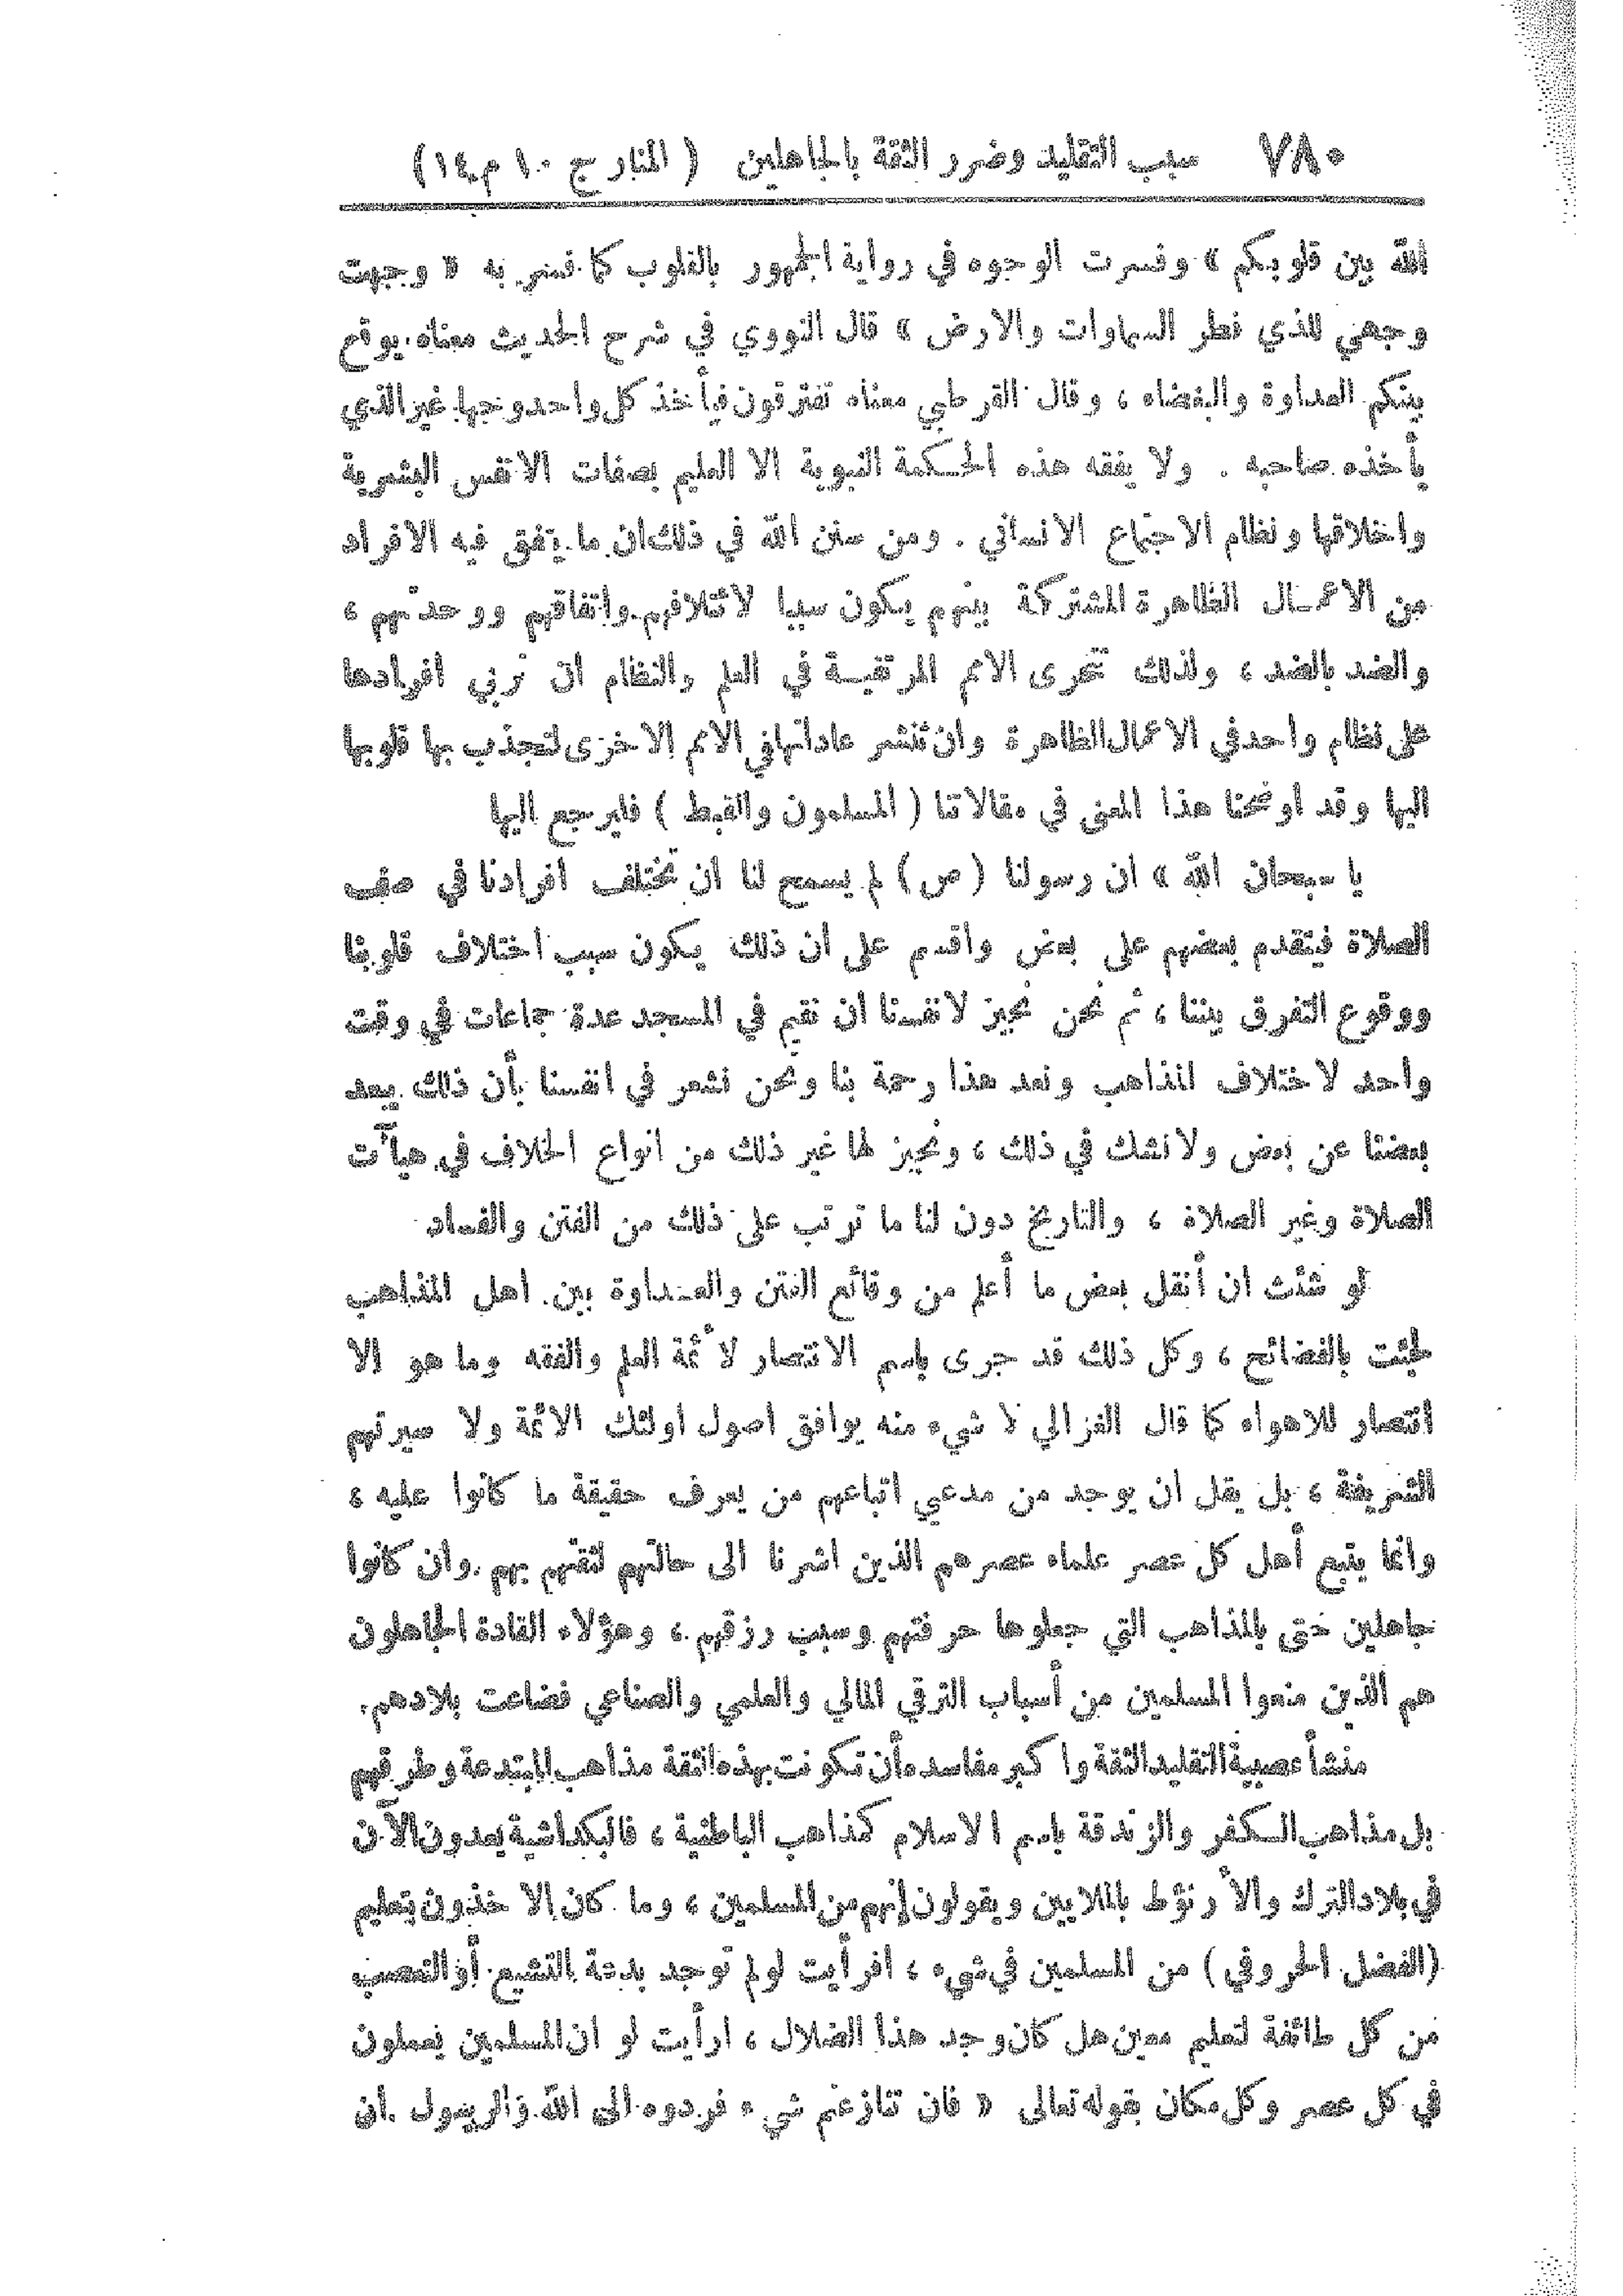 ٧٨٠ سبب التقليد وضرر الثقة بالجاهلين ( المنار ج ١٠ م ١٤)
الله بين قلوبكم » وفسرت الوجوه في رواية الجمهور بالقلوب كما فسر به « وجهت
وجهي للذي فطر السماوات والارض » قال النووي في شرح الحديث معناه يوقع
بينكم العداوة والبغضاء ، وقال القرطبي معناه تفترقون فيأخذ كل واحد وجها غير الذي
يأخذه صاحبه . ولا يفقه هذه الحكمة النبوية الا العليم بصفات الانفس البشرية
واخلاقها ونظام الاجتماع الانساني . ومن سنن الله في ذلك ان ما يتفق فيه الافراد
من الاعمال الظاهرة المشتركة بينهم يكون سببا لائتلافهم واتفاقهم ووحدتهم ،
والضد بالضد ، ولذلك تتحرى الامم المرتقية في العلم والنظام ان تربي افرادها
على نظام واحد في الاعمال الظاهرة وان تنشر عاداتها في الامم الاخرى لتجذب بها قلوبها
اليها وقد اوضحنا هذا المعنى في مقالاتنا ( المسلمون والقبط ) فليرجع اليها
يا سبحان الله » ان رسولنا (ص) لم يسمح لنا ان تختلف افرادنا في صف
الصلاة فيتقدم بعضهم على بعض واقسم على ان ذلك يكون سبب اختلاف قلوبنا
ووقوع التفرق بيننا ، ثم نحن نجيز لانفسنا ان نقيم في المسجد عدة جماعات في وقت
واحد لاختلاف المذاهب ونعد هذا رحمة بنا ونحن نشعر في انفسنا بأن ذلك يبعد
بعضنا عن بعض ولا نشك في ذلك ، ونجيز لها غير ذلك من انواع الخلاف في هيآت
الصلاة وغير الصلاة ، والتاريخ دون لنا ما ترتب على ذلك من الفتن والفساد
لو شئت ان أنقل بعض ما أعلم من وقائع الفتن والعداوة بين اهل المذاهب
لجئت بالفضائح ، وكل ذلك قد جرى باسم الانتصار لأئمة العلم والفقه وما هو الا
انتصار للاهواء كما قال الغزالي لا شيء منه يوافق اصول اولئك الائمة ولا سيرتهم
الشريفة ، بل يقل ان يوجد من مدعي اتباعهم من يعرف حقيقة ما كانوا عليه ،
وانما يتبع أهل كل عصر علماء عصرهم الذين اشرنا الى حالتهم لثقتهم بهم وان كانوا
جاهلين حتى بالمذاهب التي جعلوها حرفتهم وسبب رزقهم ، وهؤلاء القادة الجاهلون
هم الذين منعوا المسلمين من أسباب الترقي المالي والعلمي والصناعي فضاعت بلادهم .
منشأ عصبية التقليد الثقة واكبر مفاسده أن تكونت بهذه الثقة مذاهب المبتدعة وطرقهم
بل مذاهب الكفر والزندقة باسم الاسلام كمذاهب الباطنية ، فالبكداشية يعدون الآن
في بلاد الترك والأرنؤط بالملايين ويقولون إنهم من المسلمين ، وما كان الآخذون بتعليم
(الفضل الحروفي) من المسلمين في شيء ، افرأيت لو لم توجد بدعة التشيع أو التعصب
من كل طائفة لتعليم معين هل كان وجد هذا الضلال ، ارأيت لو ان المسلمين يعملون
في كل عصر وكل مكان بقوله تعالى « فان تنازعتم شيء فردوه الى الله والرسول ان